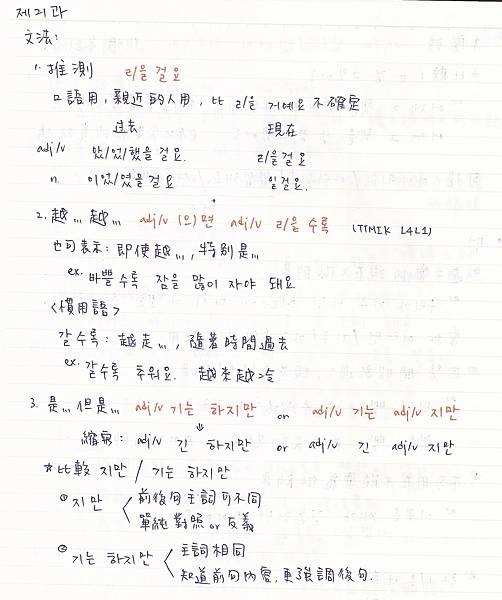 제21과
文法:
1. 推測 ㄹ/을 걸요
口語用，親近的人用，比 ㄹ/을 거예요 不確定
过去 現在
adj/v 았/었/했을걸요. ㄹ/을걸요
n. 이었/였을걸요 일걸요.
2. 越…越… adj/v (으)면 adj/v ㄹ/을수록 (TTMIK L4L1)
也可表示: 即使越…, 特別是…
ex. 바쁠수록 잠을 많이 자야 돼요
<慣用語>
갈수록: 越走…, 隨著時間過去
ex. 갈수록 추워요. 越來越冷
3. 是…但是… adj/v 기는 하지만 or adj/v 기는 adj/v 지만
縮寫: adj/v 긴 하지만 or adj/v 긴 adj/v 지만
*比較 지만 / 기는 하지만
① 지만 < 前後句主詞可不同
單純對照 or 反義
② 기는 하지만 < 主詞相同
知道前句內容, 更強調後句.